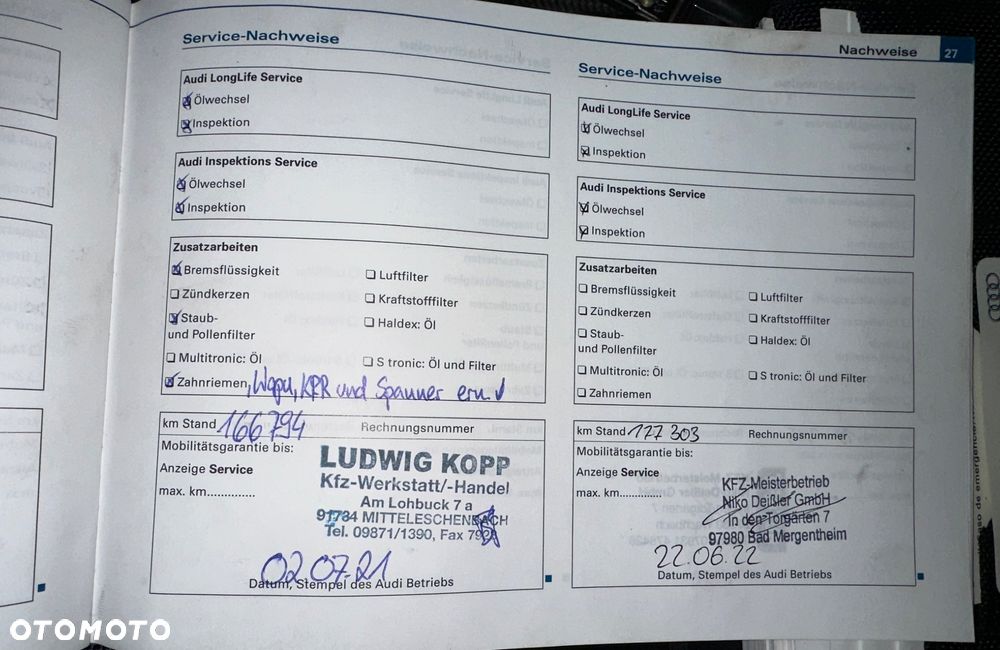 Service-Nachweise
Audi LongLife Service
Ölwechsel
Inspektion
Audi Inspektions Service
Ölwechsel
Inspektion
Zusatzarbeiten
Bremsflüssigkeit
Luftfilter
Zündkerzen
Kraftstofffilter
Staub-
und Pollenfilter
Haldex: Öl
Multitronic: Öl
S tronic: Öl und Filter
Zahnriemen, Wapu, KRR und Spanner ern.
km Stand 166794
Rechnungsnummer
Mobilitätsgarantie bis:
Anzeige Service
max. km..............
LUDWIG KOPP
Kfz-Werkstatt/-Handel
Am Lohbuck 7 a
91734 MITTELESCHENBACH
Tel. 09871/1390, Fax
02.07.21
Datum, Stempel des Audi Betriebs
Nachweise 27
Service-Nachweise
Audi LongLife Service
Ölwechsel
Inspektion
Audi Inspektions Service
Ölwechsel
Inspektion
Zusatzarbeiten
Bremsflüssigkeit
Luftfilter
Zündkerzen
Kraftstofffilter
Staub-
und Pollenfilter
Haldex: Öl
Multitronic: Öl
S tronic: Öl und Filter
Zahnriemen
km Stand 177 303
Rechnungsnummer
Mobilitätsgarantie bis:
Anzeige Service
max. km..............
KFZ-Meisterbetrieb
Niko Deißler GmbH
In den Torgärten 7
97980 Bad Mergentheim
22.06.22
Datum, Stempel des Audi Betriebs
OTOMOTO